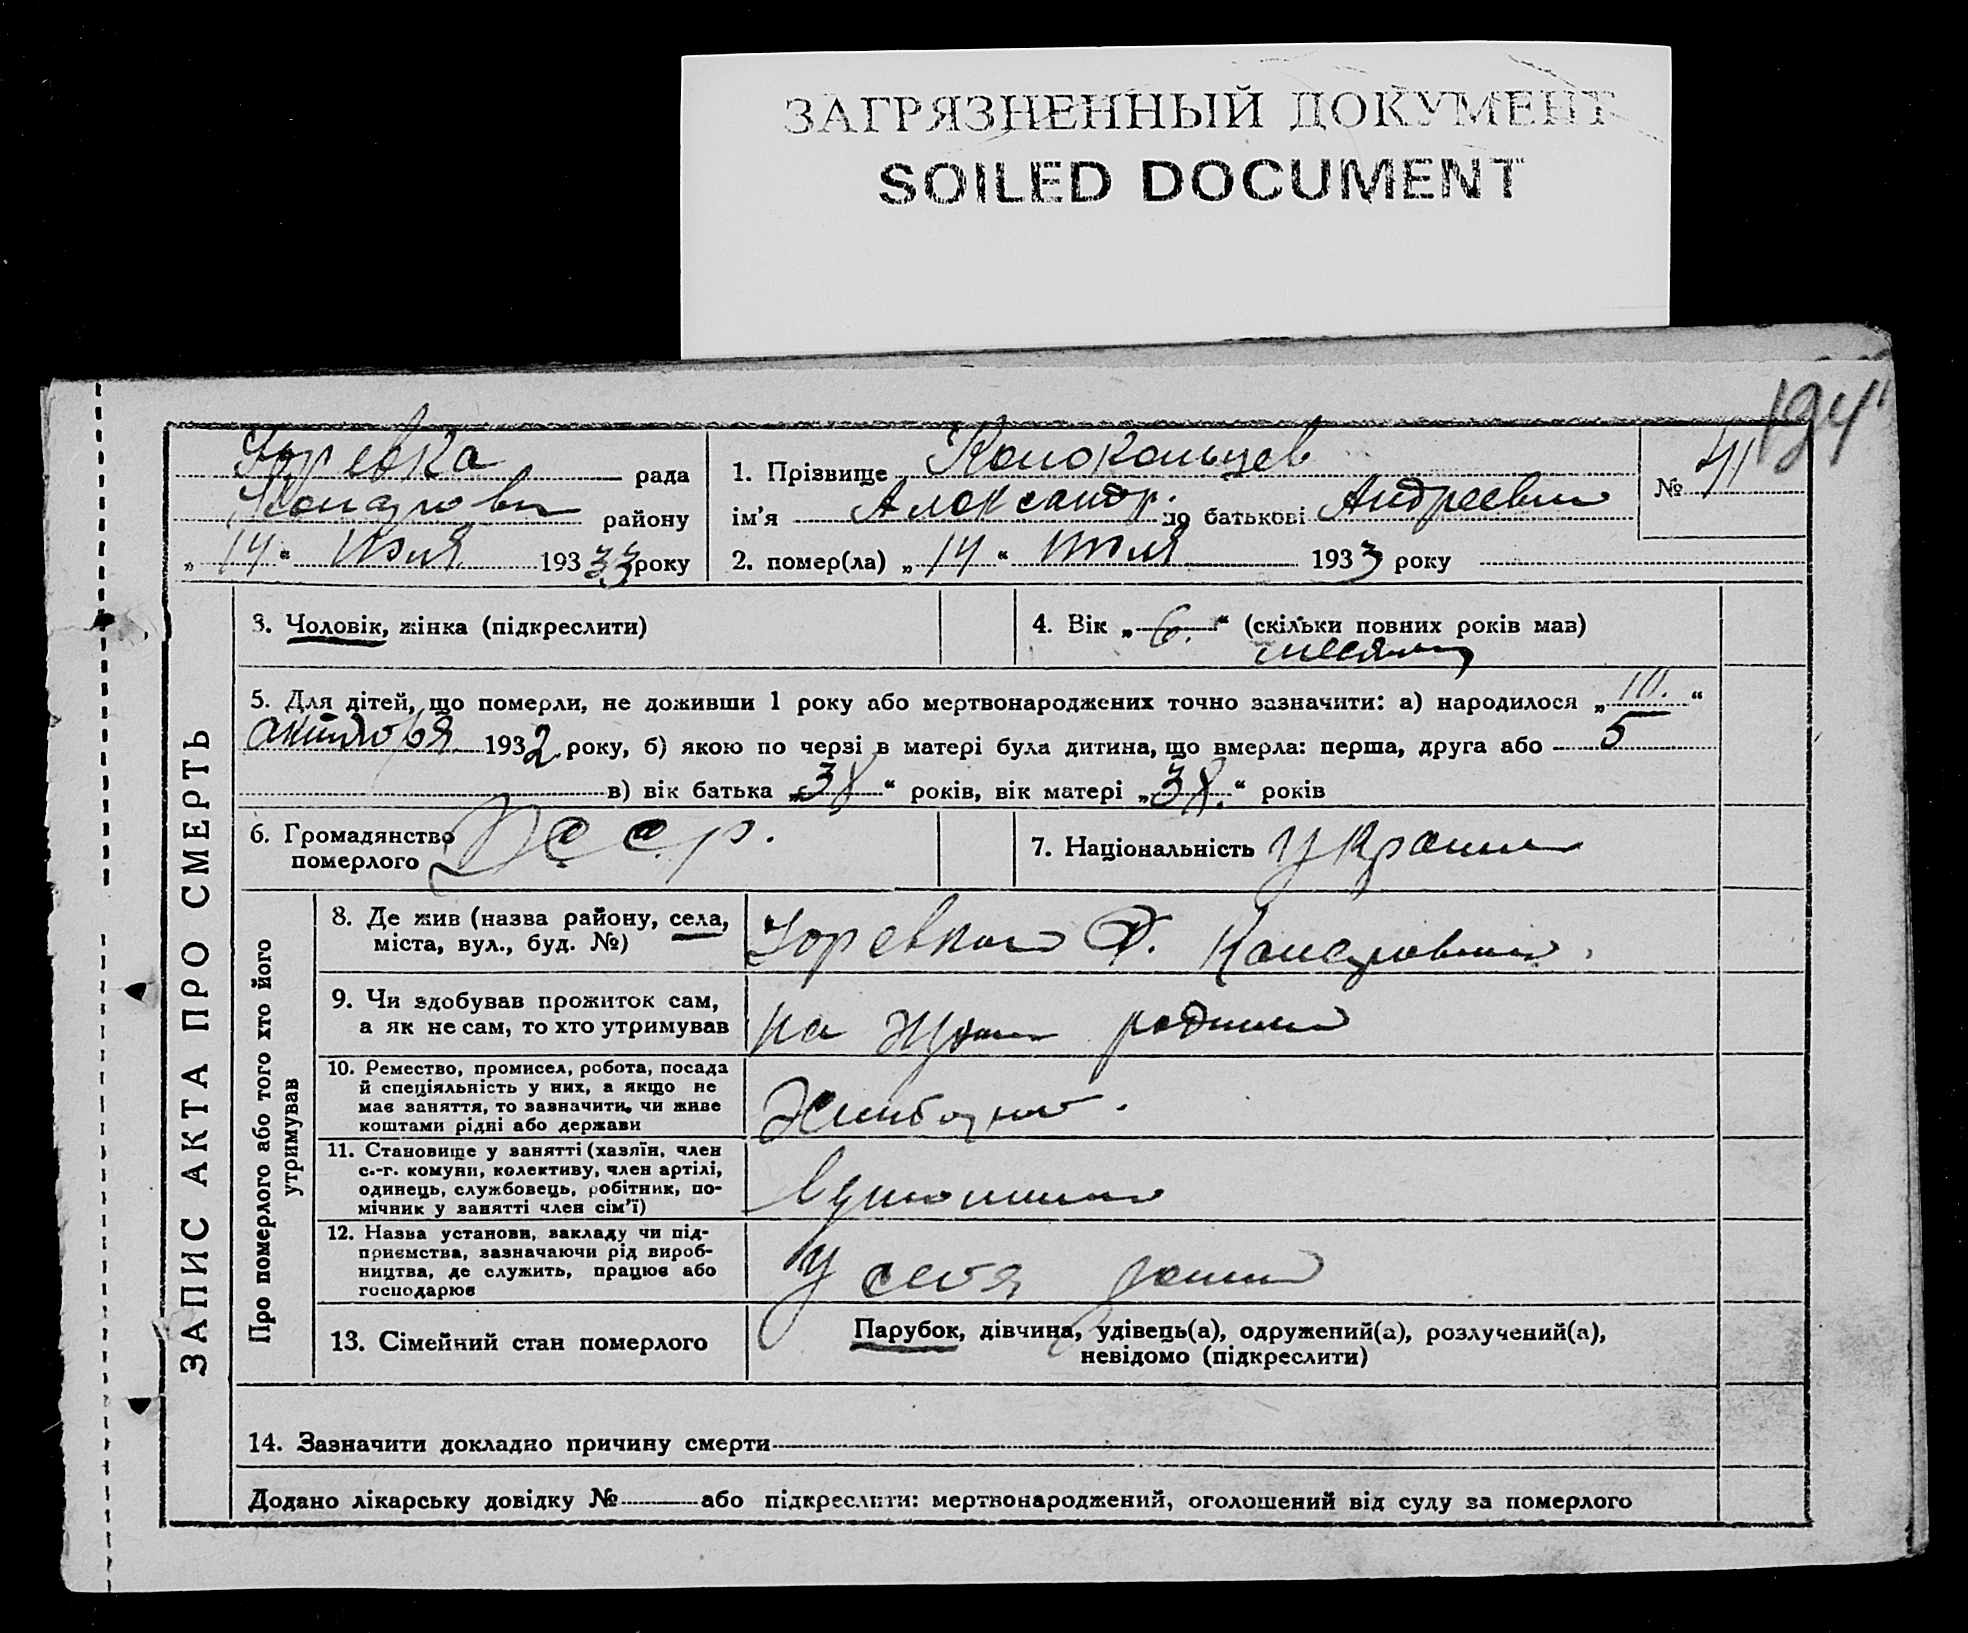 ЗАГРЯЗНЕННЫЙ ДОКУМЕНТ
SOILED DOCUMENT
194
рада
району
„14“ Июля 193 33 року
1. Прізвище Колокольцев
ім’я Александр. по батькові Андреевич
2. помер(ла) „14“ Июля 1933 року
№ 41
ЗАПИС АКТА ПРО СМЕРТЬ
3. Чоловік, жінка (підкреслити)
4. Вік „6.“ (скільки повних років мав)
месяцев
5. Для дітей, що померли, не доживши 1 року або мертвонароджених точно зазначити: а) народилося „10.“
октября 1932 року, б) якою по черзі в матері була дитина, що вмерла: перша, друга або 5
в) вік батька „38“ років, вік матері „38.“ років
6. Громадянство
померлого
7. Національність Украин
Про померлого або того хто його
утримував
8. Де жив (назва району, села,
міста, вул., буд. №)
9. Чи здобував прожиток сам,
а як не сам, то хто утримував
на родини
10. Ремество, промисел, робота, посада
й спеціяльність у них, а якщо не
має заняття, то зазначити, чи живе
коштами рідні або держави
11. Становище у занятті (хазяїн, член
с.-г. комуни, колективу, член артілі,
одинець, службовець, робітник, по-
мічник у занятті член сім’ї)
12. Назва установи, закладу чи під-
приємства, зазначаючи рід вироб-
ництва, де служить, працює або
господарює
У себя дома
13. Сімейний стан померлого
Парубок, дівчина, удівець(а), одружений(а), розлучений(а),
невідомо (підкреслити)
14. Зазначити докладно причину смерти
Додано лікарську довідку № або підкреслити: мертвонароджений, оголошений від суду за померлого